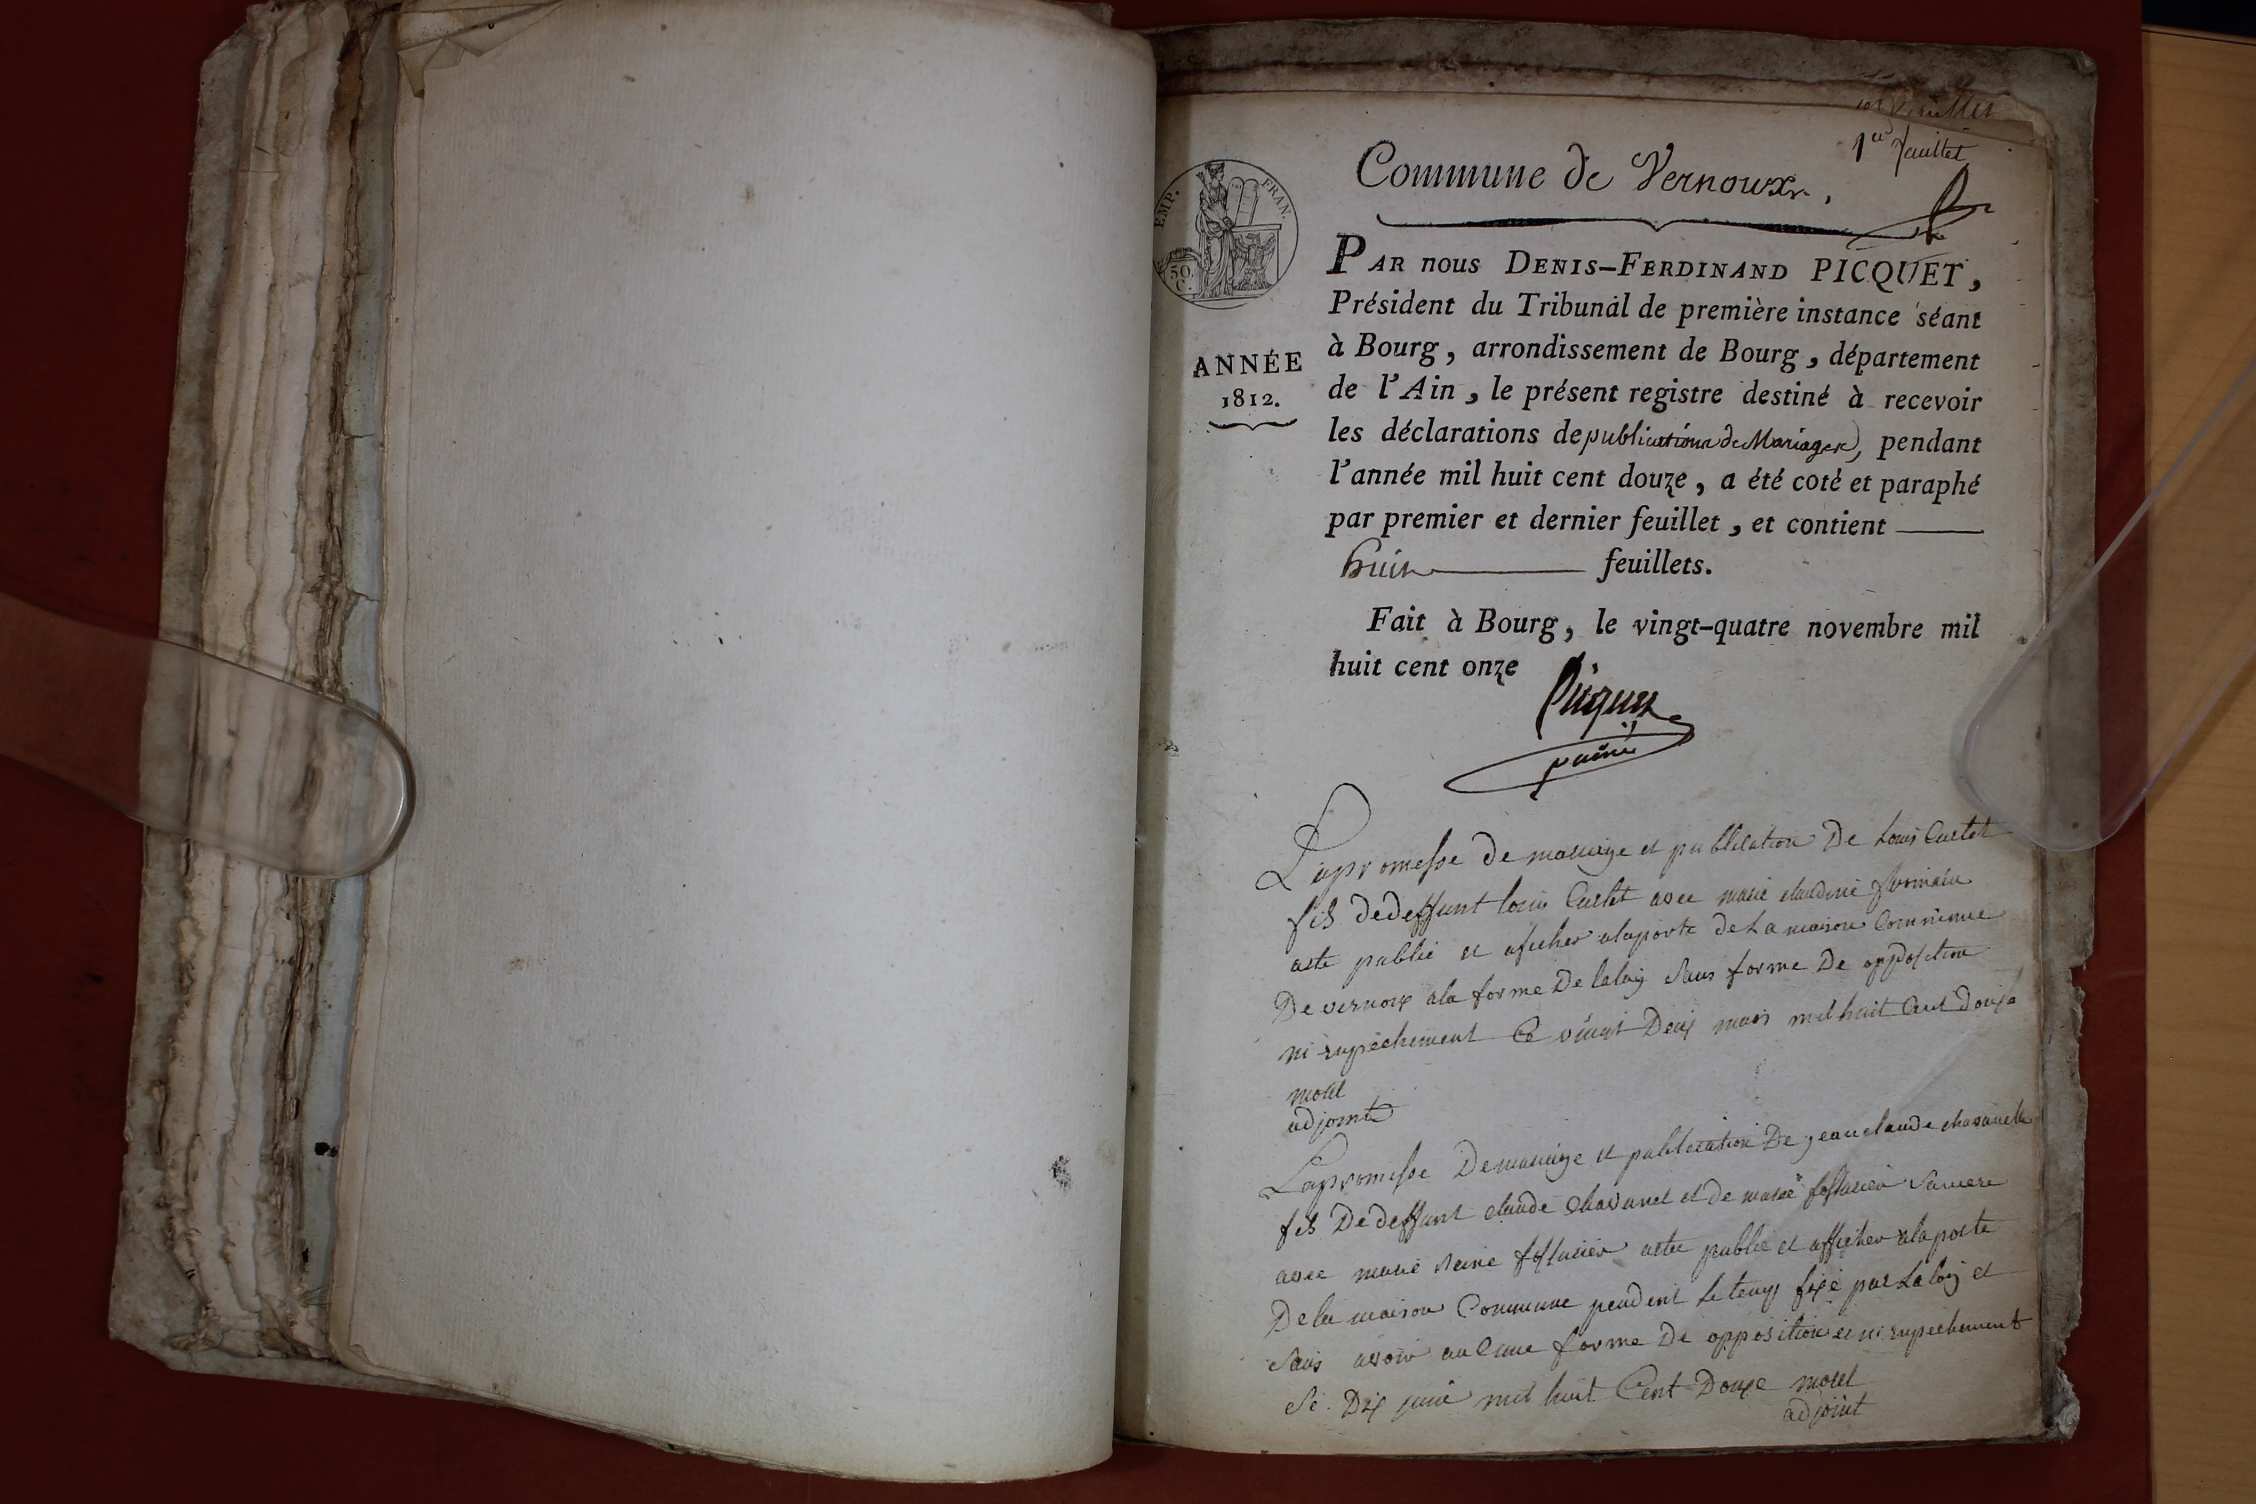 1er feuillet
Commune de Vernoux.
EMP. FRAN.
50.
C.
ANNÉE
1812.
PAR nous DENIS-FERDINAND PICQUET,
Président du Tribunal de première instance séant
à Bourg, arrondissement de Bourg, département
de l'Ain, le présent registre destiné à recevoir
les déclarations de publications de Mariages, pendant
l'année mil huit cent douze, a été coté et paraphé
par premier et dernier feuillet, et contient
huit feuillets.
Fait à Bourg, le vingt-quatre novembre mil
huit cent onze
Picquet
Lapromesse de mariage et publication De Louis Curtet
fils dedeffunt louis Curtet avec marie claudine
aste publié et aficher alaporte deLa maison Commune
De vernoux ala forme De laloy Sans forme De opposition
ni enpechement Ce vingt Deux mars mil huit Cent Douze
morel
adjoint
Lapromesse Demariage et publication De jean claude chavanel
fils De deffunt claude Chavanel et de marie Samere
avec marie Reine aste publié et afficher alaporte
Dela maison Commune pendent le temp fixé par La loy et
Sans avoir auCune forme De opposition et ni enpechement
Ce Dix juin mil huit Cent Douze morel
adjoint